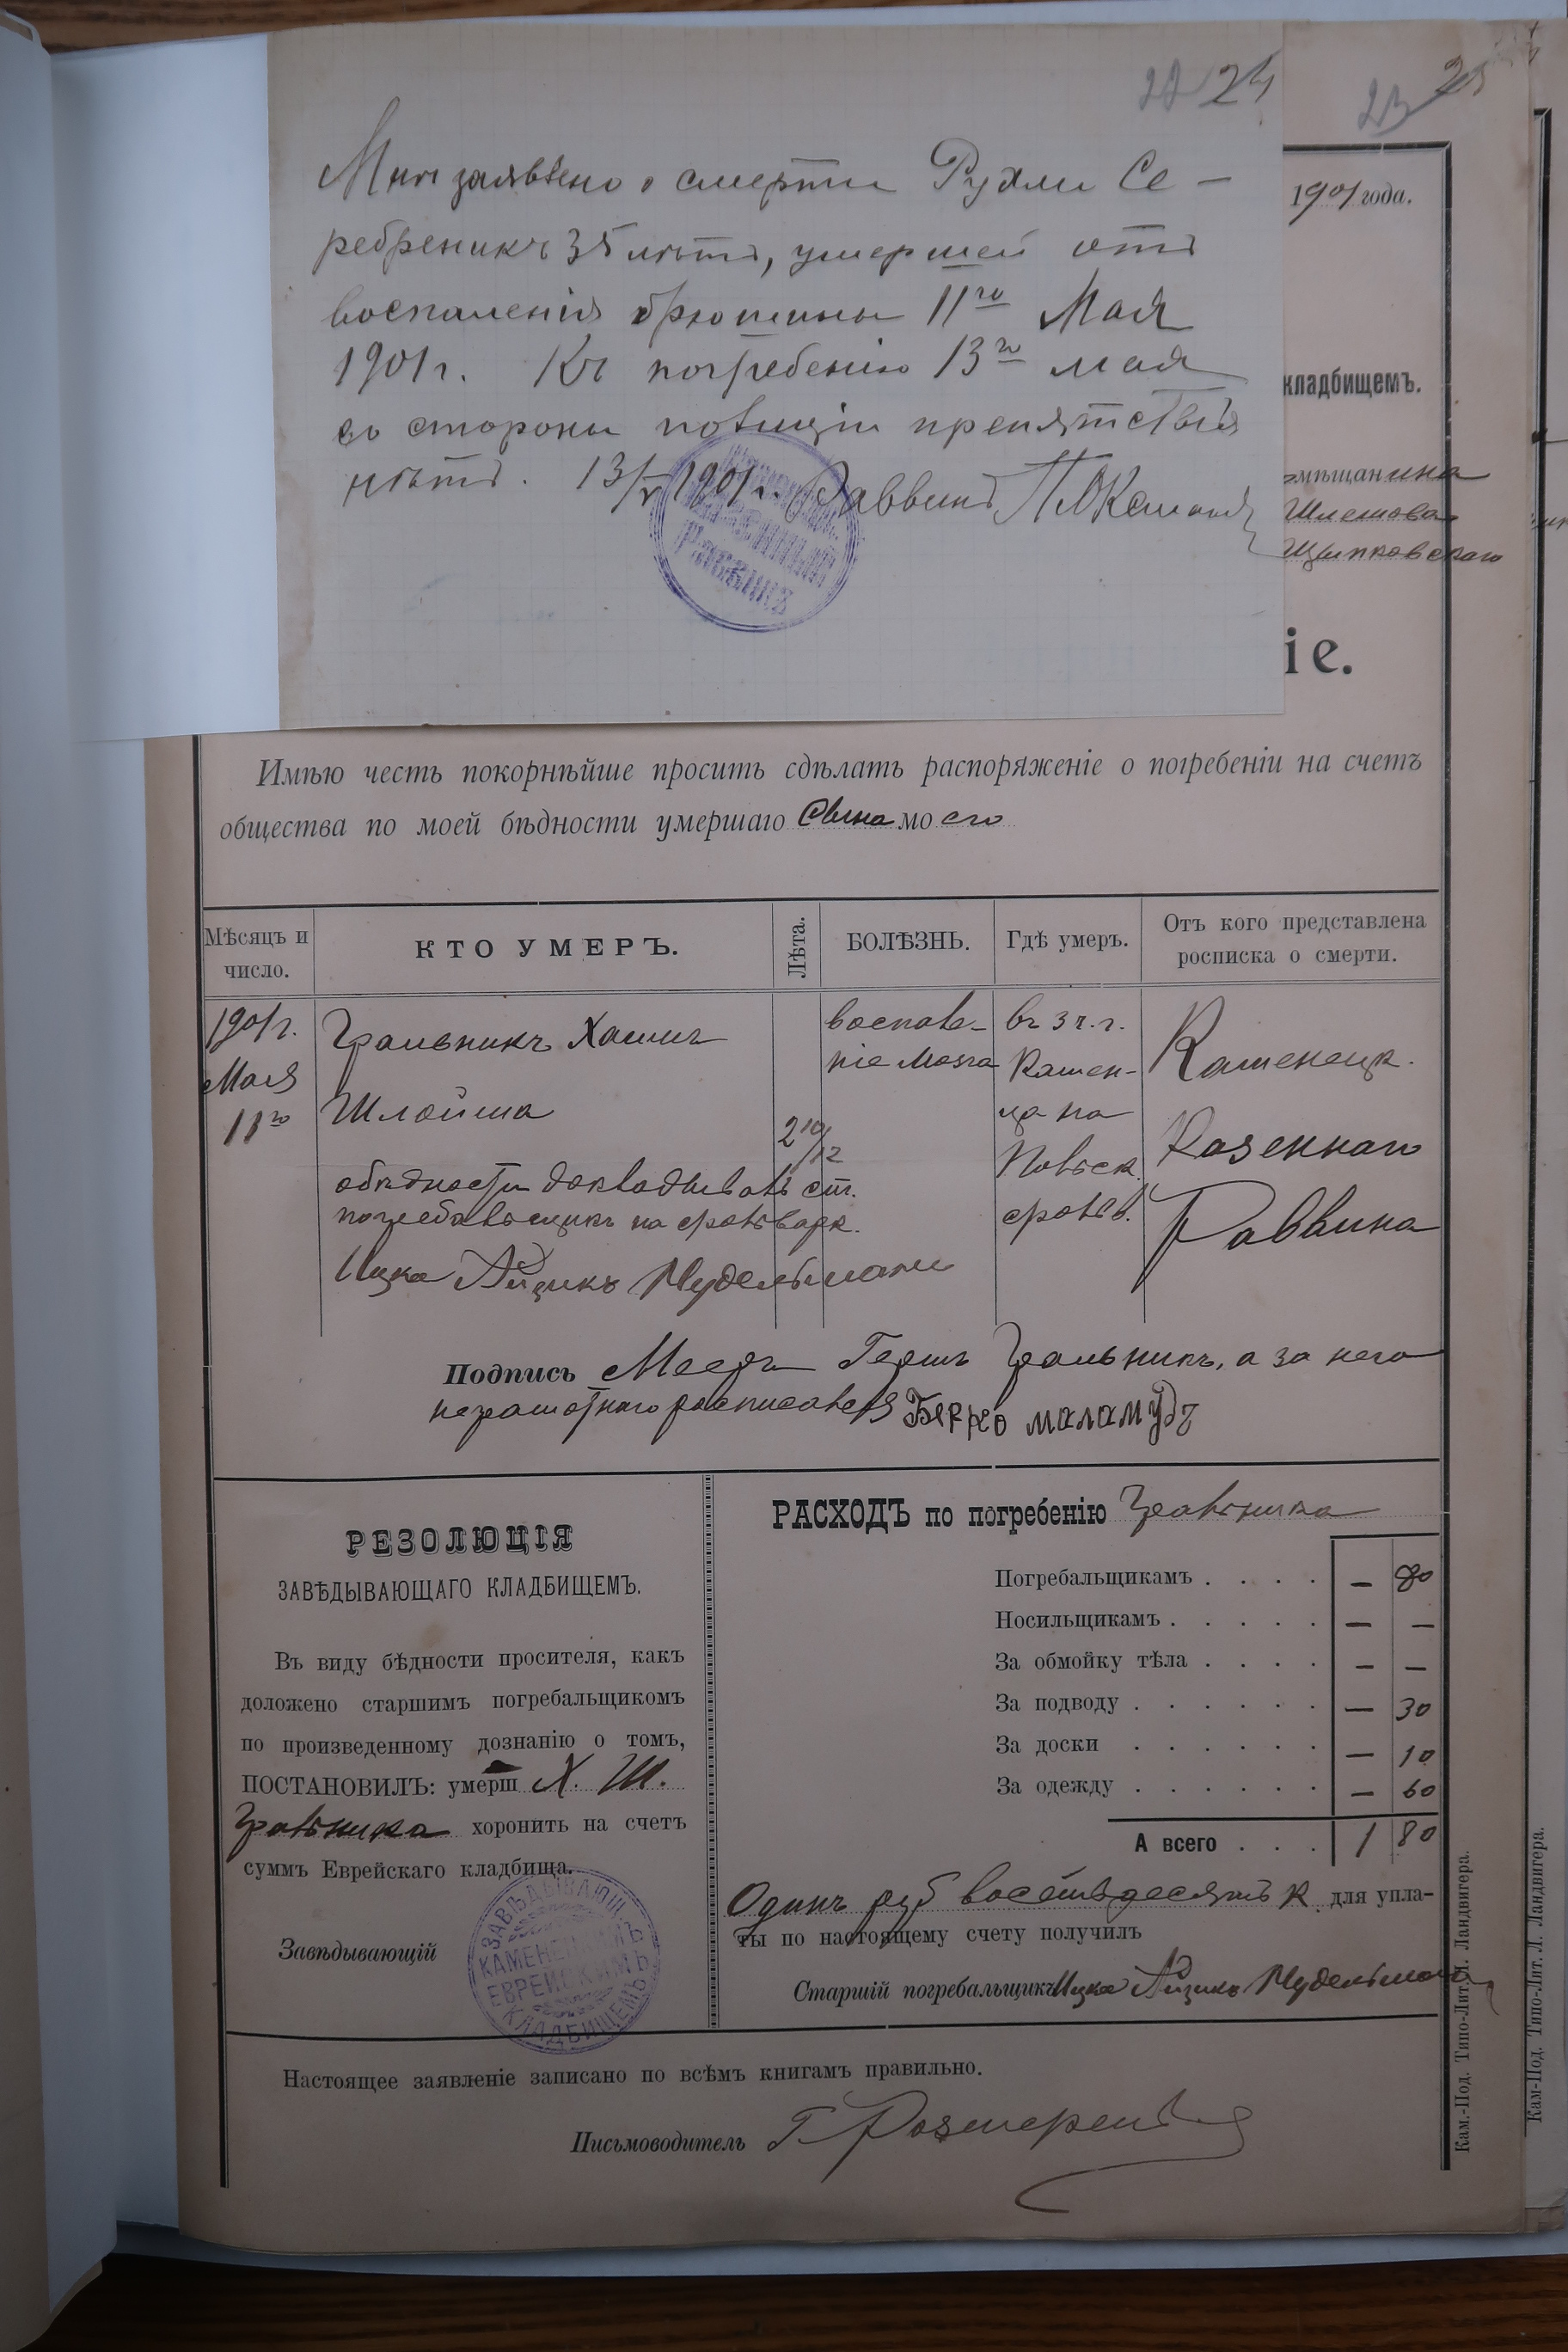 22 24
Мнѣ заявлено о смерти Рухли Се-
ребреникъ 35 лѣтъ, умершей отъ
воспаленія брюшины 11го Мая
1901 г. Къ погребенію 13го мая
со стороны полиціи препятствія
нѣтъ. 13/V 1901 г. Раввинъ
РАВВИНЪ
23 25
1901 года.
кладбищемъ.
мѣщанина
іе.
Имѣю честь покорнѣйше просить сдѣлать распоряженіе о погребеніи на счетъ
общества по моей бѣдности умершаго Сына моего
Мѣсяцъ и число.
КТО УМЕРЪ.
Лѣта.
БОЛѢЗНЬ.
Гдѣ умеръ.
Отъ кого представлена росписка о смерти.
1901 г.
Мая
11го
Гральникъ Хаимъ
Шлойма
2 10/12
воспале-
ніе мозга
въ 3 ч. г.
Камен-
ца на
Польск.
фольв.
Каменецк.
Казеннаго
Раввина
о бѣдности докладывалъ ст.
погребальщикъ на фольварк.
Ицко Айзикъ Нудельманъ
Подпись Мееръ Гершъ Гральникъ, а за него
неграмотнаго росписался Берко маламудъ
РЕЗОЛЮЦІЯ
ЗАВѢДЫВАЮЩАГО КЛАДБИЩЕМЪ.
Въ виду бѣдности просителя, какъ
доложено старшимъ погребальщикомъ
по произведенному дознанію о томъ,
ПОСТАНОВИЛЪ: умерш Х. Ш.
Гральника хоронить на счетъ
суммъ Еврейскаго кладбища.
Завѣдывающій
ЗАВѢДЫВАЮЩ.
КАМЕНЕЦКИМЪ
ЕВРЕЙСКИМЪ
КЛАДБИЩЕМЪ
РАСХОДЪ по погребенію Гральника
Погребальщикамъ . . . . — 80
Носильщикамъ . . . . . — —
За обмойку тѣла . . . . — —
За подводу . . . . . . — 30
За доски . . . . . . — 10
За одежду . . . . . . — 60
А всего . . . 1 80
Одинъ руб восемьдесятъ к. для упла-
ты по настоящему счету получилъ
Старшій погребальщикъ Ицко Айзикъ Нудельманъ
Настоящее заявленіе записано по всѣмъ книгамъ правильно.
Письмоводитель
Кам.-Под. Типо-Лит. Л. Ландвигера.
Кам-Под. Типо-Лит. Л. Ландвигера.